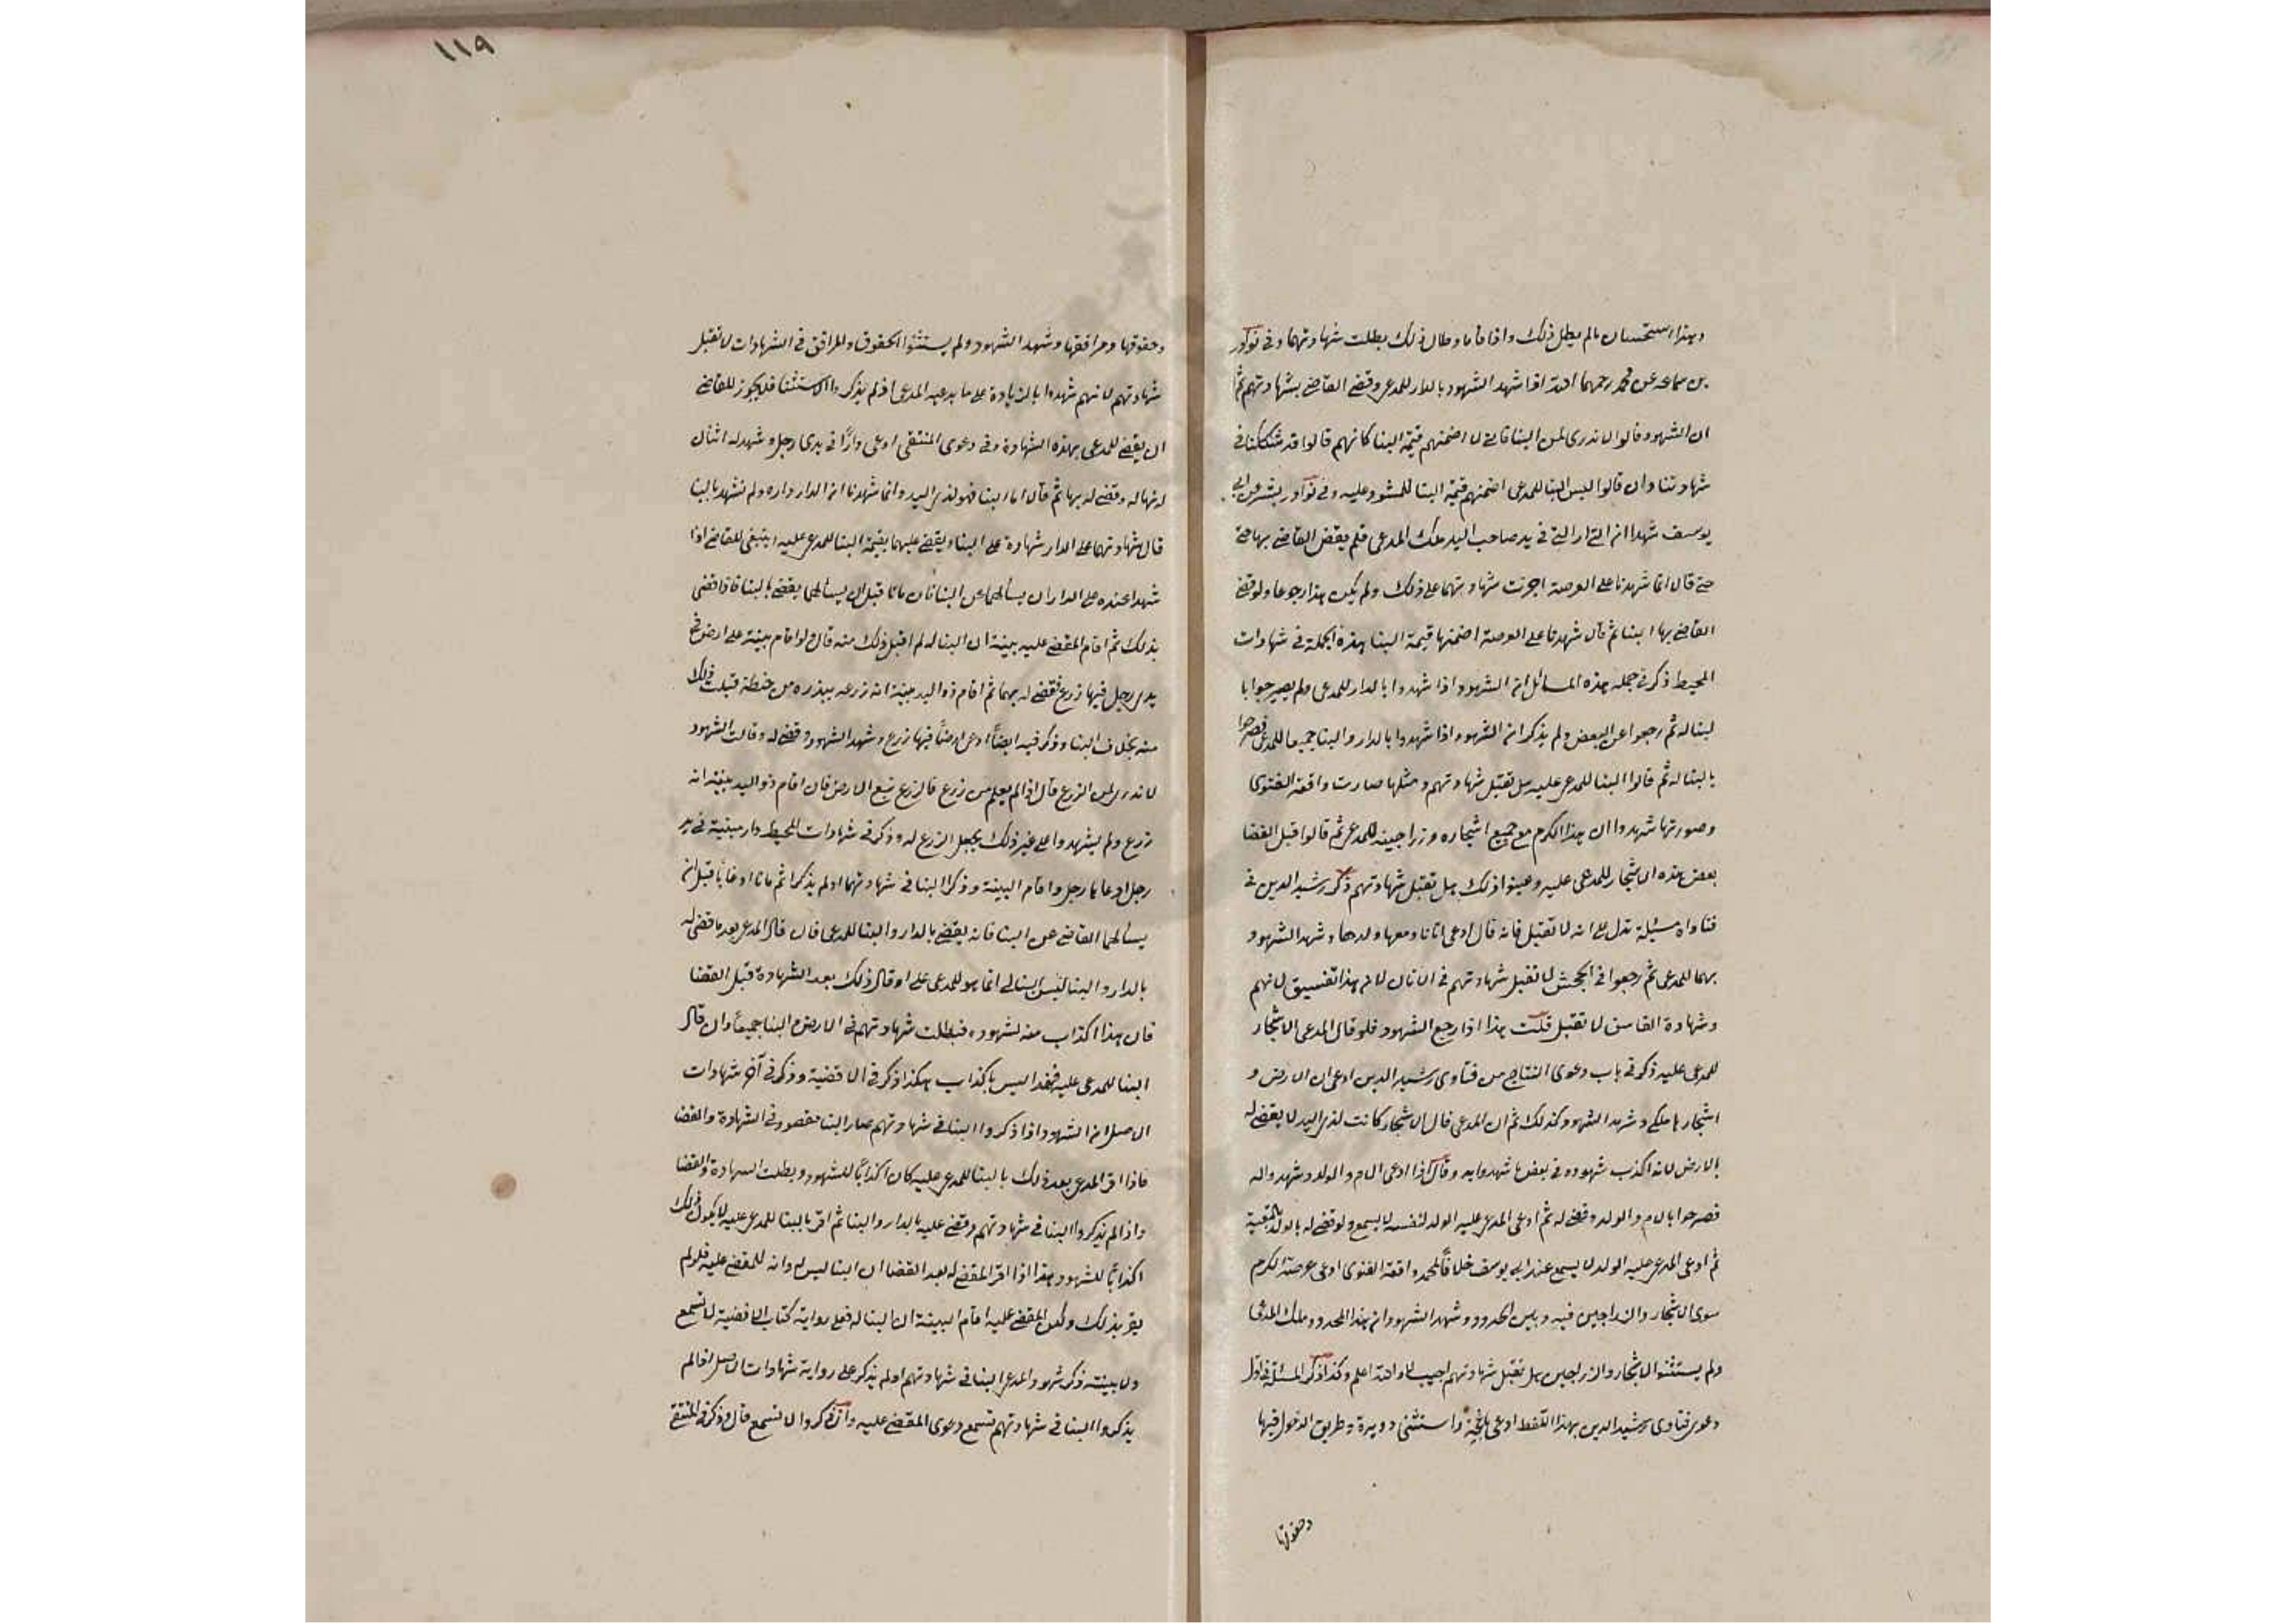 وهذا استحسان مالم يطل ذلك واذا قاما وطال ذلك بطلت شهادتهما وفي نوادر
بن سماعه عن محمد رحمهما الله اذا شهد الشهود بالدار للمدعي وقضى القاضي بشهادتهم ثم
ان الشهود قالوا لا ندري لمن البنا فاني لا اضمنهم قيمة البنا كانهم قالوا قد شككنا في
شهادتنا وان قالوا ليس البنا للمدعي اضمنهم قيمة البنا للمشهود عليه وفي نوادر بشر عن ابي
يوسف شهدا ان الدار التي في يد صاحب اليد ملك المدعي فلم يقض القاضي بها حتى
حتى قال انما شهدنا على العرصة اجزت شهادتهما على ذلك ولم يكن هذا رجوعا ولو قضى
القاضي بها ابنا ثم قال شهدنا على العرصة اضمنها قيمة البنا هذه الجملة في شهادات
المحيط ذكر في جملة هذه المسائل ان الشهود اذا شهدوا بالدار للمدعي ولم يصير جوابا
لبنا له ثم رجعوا عن البعض ولم يذكر ان الشهود اذا شهدوا بالدار والبنا جميعا للمدعي فصرحوا
بالبنا له ثم قالوا البنا للمدعي عليه هل تقبل شهادتهم ومثلها صارت واقعة الفتوى
وصورتها شهدوا ان هذا الكرم مع جميع اشجاره وزراجينه للمدعي ثم قالوا قبل القضا
بعض هذه الاشجار للمدعي عليه وعينوا ذلك هل تقبل شهادتهم ذكر رشيد الدين في
فتاواه مسئلة تدل على انه لا تقبل فانه قال ادعى اتانا ومعها ولدها وشهد الشهود
بهما للمدعي ثم رجعوا في الجحش لا تقبل شهادتهم في الاتان لان هذا تفسيق لانهم
وشهادة الفاسق لا تقبل قلت هذا اذا رجع الشهود فلو قال المدعي الاشجار
للمدعي عليه ذكر في باب دعوى النتاج من فتاوى رشيد الدين ادعى ان الارض و
اشجارها ملكي وشهد الشهود كذلك ثم ان المدعي قال الاشجار كانت لذي اليد لا يقضى له
بالارض لانه اكذب شهوده في بعض ما شهدوا به وقال اذا ادعى الام والولد وشهدوا له
فصرحوا بالام والولد وقضي له ثم ادعى المدعي عليه الولد لنفسه لا يسمع ولو قضي له بالولد بالتبعية
ثم ادعى المدعي عليه الولد لا يسمع عند ابي يوسف خلافا لمحمد واقعة الفتوى ادعى عرصة الكرم
سوى الاشجار والزراجين فيه وبين الحدود وشهد الشهود ان هذا المحدود ملك المدعي
ولم يستثنوا الاشجار والزراجين هل تقبل شهادتهم اجيب لا والله اعلم وكذا ذكر المسئلة في اول
دعوى فتاوى رشيد الدين بهذا اللفظ ادعى باغچة واستثنى دويرة وطريق الدخول فيها
وحقوقها
١١٩
وحقوقها ومرافقها وشهد الشهود ولم يستثنوا الحقوق والمرافق في الشهادات لا تقبل
شهادتهم لانهم شهدوا بالزيادة على ما يدعيه المدعي اذ لم يذكروا الاستثنا فلا يجوز للقاضي
ان يقضي للمدعي بهذه الشهادة وفي دعوى المنتقى ادعى دارا في يدي رجل وشهد له اثنان
انها له وقضي له بها ثم قال اما البنا فهو لذي اليد وانما شهدنا ان الدار داره ولم نشهد بالبنا
قال شهادتهما على الدار شهادة على البنا ويقضى عليهما بقيمة البنا للمدعي عليه وينبغي للقاضي اذا
شهدا عنده على الدار ان يسألهما عن البنا فان ماتا قبل ان يسألهما يقضي بالبنا فاذا قضى
بذلك ثم اقام المقضي عليه بينة ان البنا له لم اقبل ذلك منه قال ولو اقام بينة على ارض في
يدي رجل فيها زرع فقضي له بهما ثم اقام ذو اليد بينة انه زرعه ببذره من حنطة قبلت ذلك
منه بخلاف البنا وذكر فيه ايضا ادعى ارضا فيها زرع وشهد الشهود وقضي له وقالت الشهود
لا ندري لمن الزرع قال اذا لم يعلم من زرع فالزرع تبع الارض فان اقام ذو اليد بينة انه
زرع ولم يشهدوا على غير ذلك يجعل الزرع له وذكر في شهادات المحيط دار مبنية في يد
رجل ادعاها رجل واقام البينة وذكرا البنا في شهادتهما او لم يذكرا ثم ماتا او غابا قبل ان
يسألهما القاضي عن البنا فانه يقضي بالدار والبنا للمدعي فان قال المدعي بعد ما قضي له
بالدار والبنا ليس البنا لي انما هو للمدعى عليه او قال ذلك بعد الشهادة قبل القضا
فان هذا اكذاب منه لشهوده فبطلت شهادتهم في الارض والبنا جميعا وان قال
البنا للمدعي عليه فهذا ليس باكذاب هكذا ذكر في الاقضية وذكر في آخر شهادات
الاصل ان الشهود اذا ذكروا البنا في شهادتهم صار البنا مقصود في الشهادة والقضا
فاذا اقر المدعي بعد ذلك بالبنا للمدعي عليه كان اكذابا للشهود وبطلت الشهادة والقضا
واذا لم يذكروا البنا في شهادتهم وقضي عليه بالدار والبنا ثم اقر بالبنا للمدعي عليه لا يكون ذلك
اكذابا للشهود هذا اذا اقر المقضي له بعد القضا ان البنا ليس له وانه للمقضي عليه فلو لم
يقر بذلك ولكن المقضي عليه اقام البينة ان البنا له فعلى رواية كتاب الاقضية لا تسمع
ولا بينته ذكر شهود المدعي البنا في شهادتهم او لم يذكر على رواية شهادات الاصل اذا لم
يذكروا البنا في شهادتهم تسمع دعوى المقضي عليه وان ذكروا لا تسمع قال وذكر في المنتقى